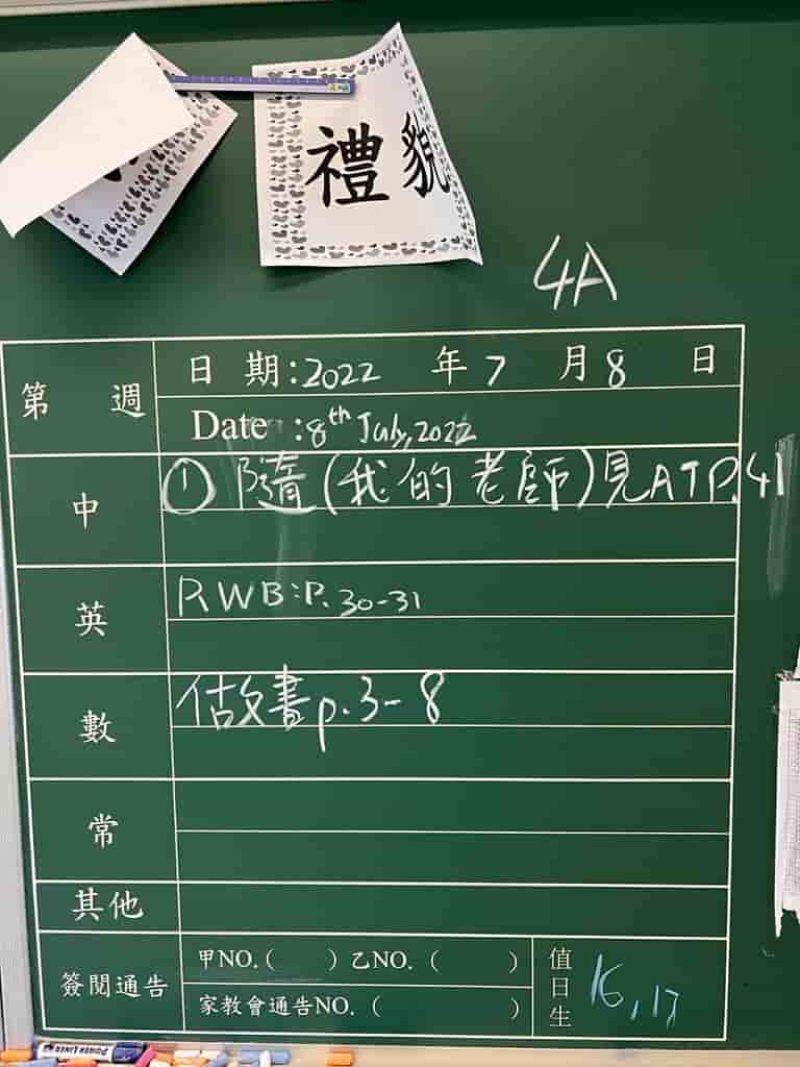 禮貌
4A
第 週
日 期:2022 年7 月8 日
Date :8th July,2022
中 ① 隨(我的老師)見ATP.41
英 RWB:P.30-31
數 做書p.3-8
常
其他
簽閱通告 甲NO.( ) 乙NO. ( )
家教會通告NO. ( )
值日生 16,17